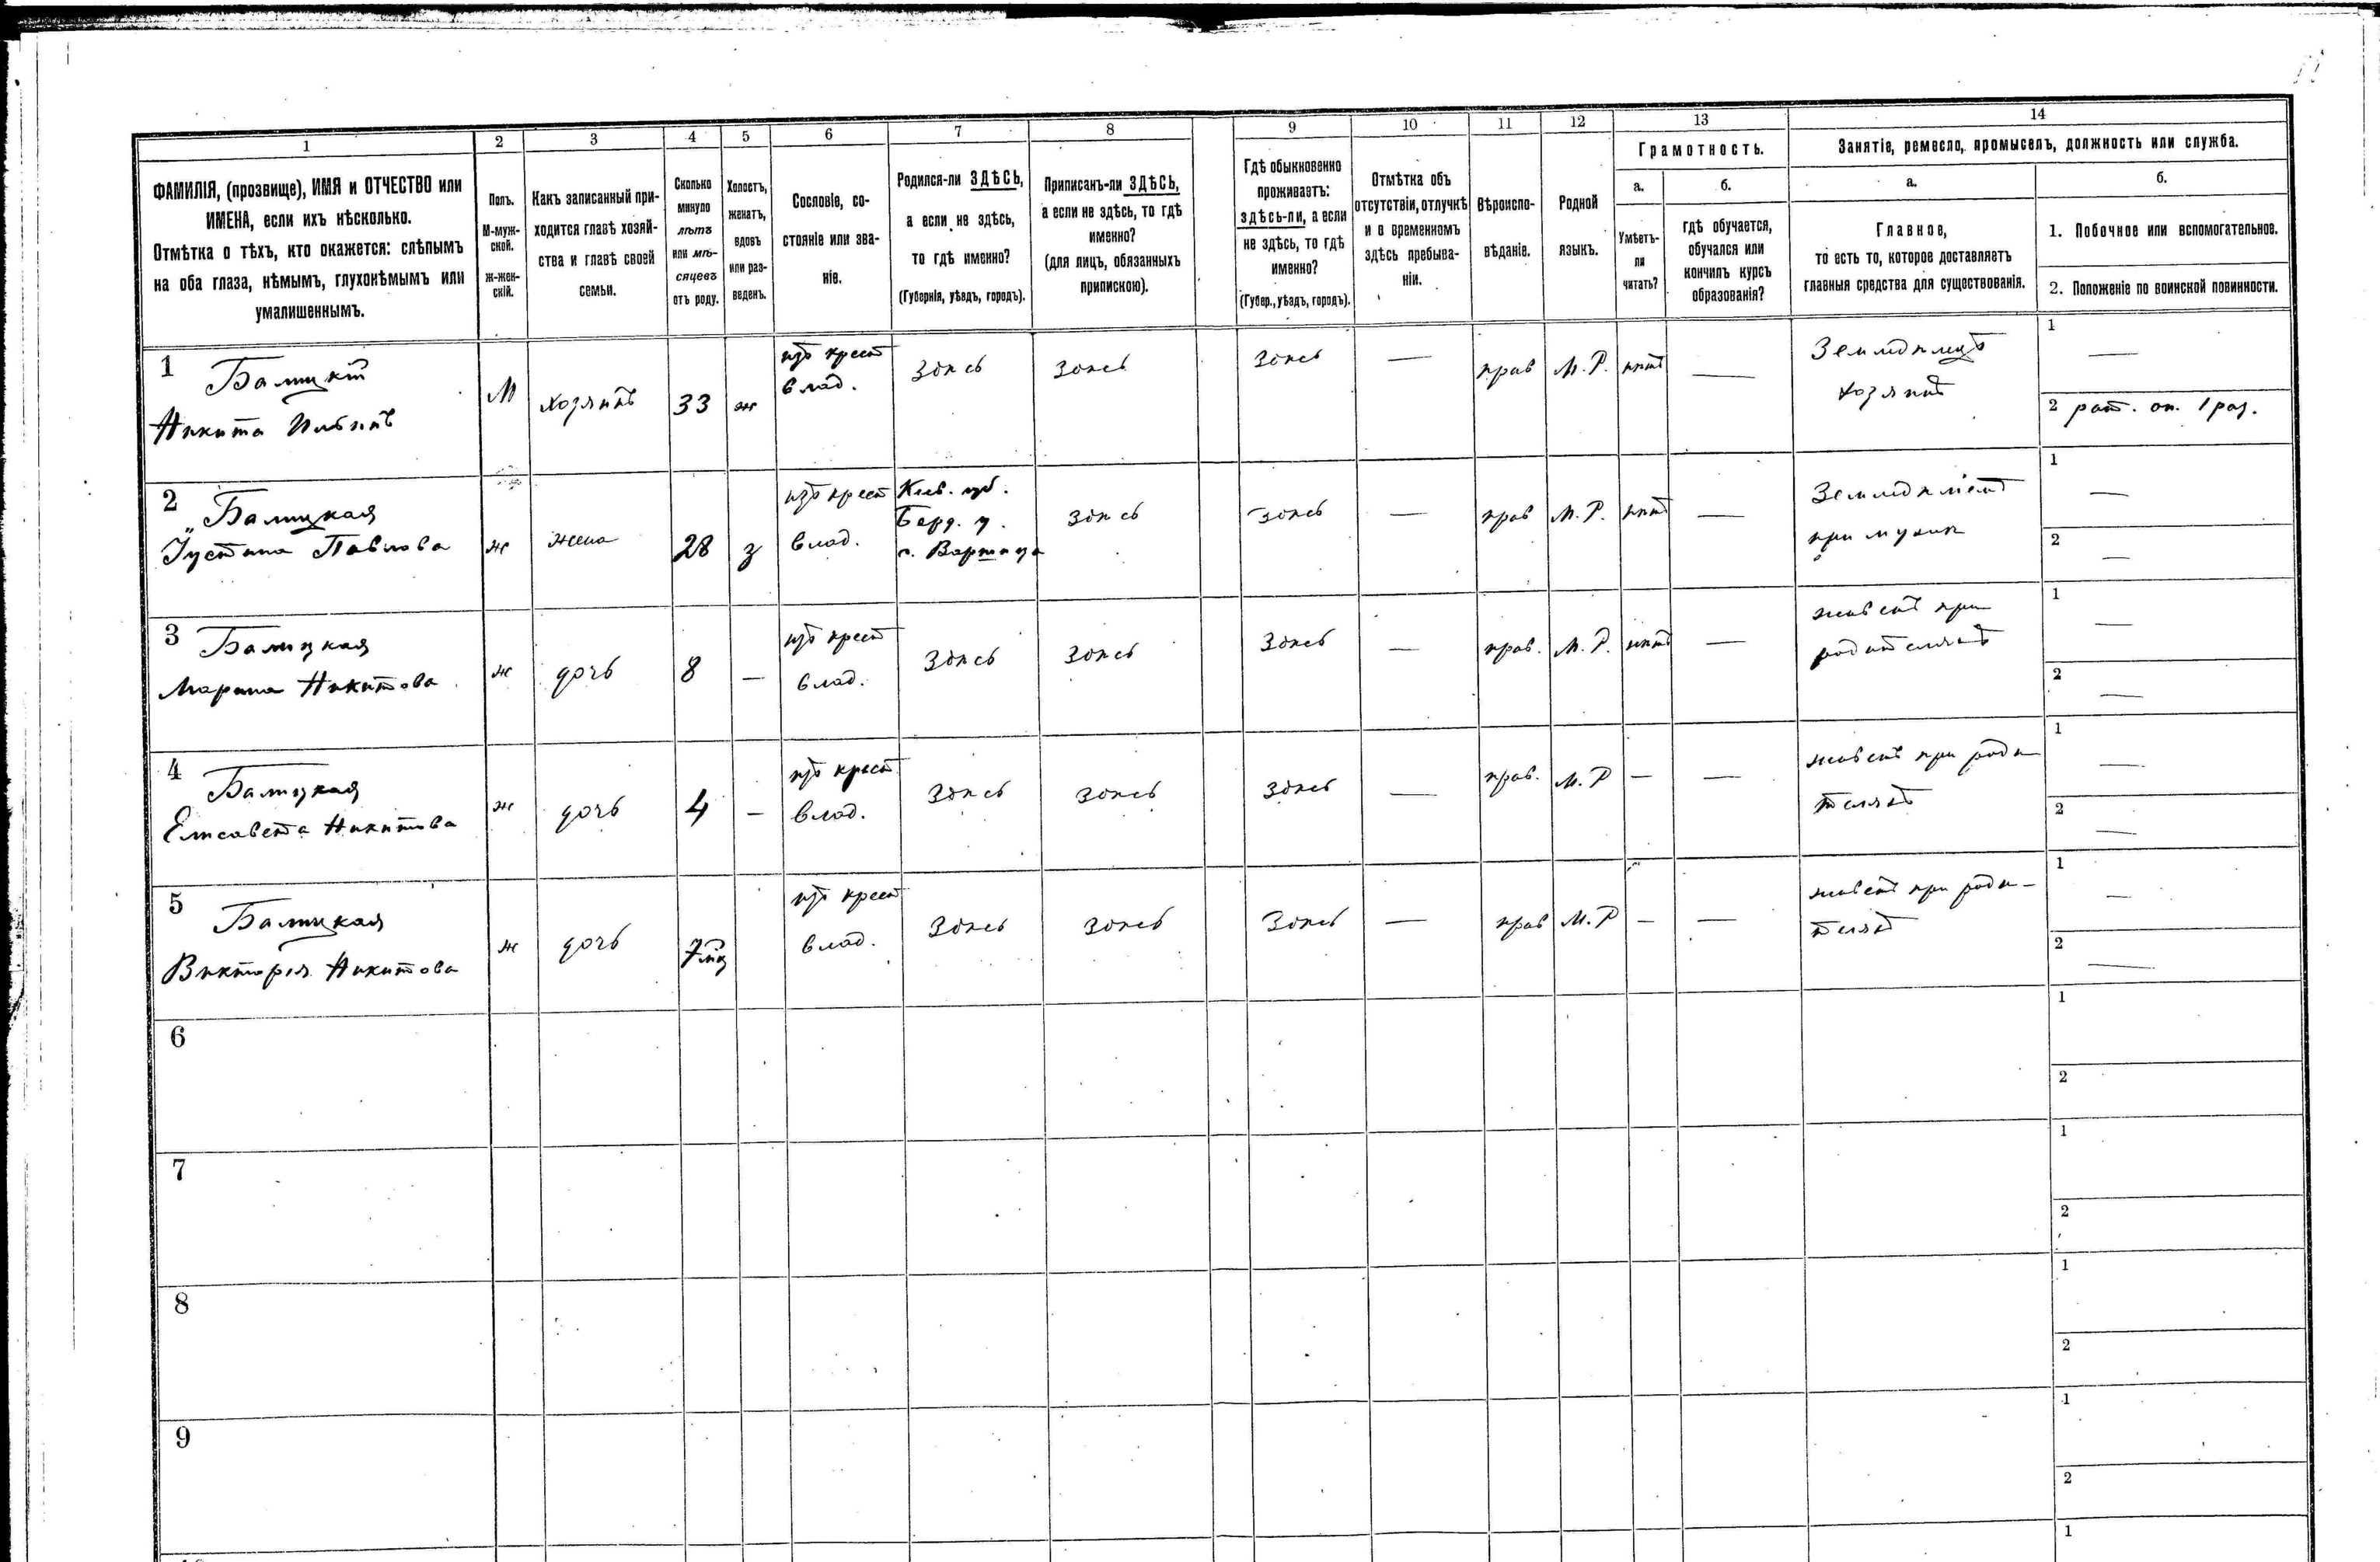 1
2
3
4
5
6
7
8
9
10
11
12
13
14
ФАМИЛІЯ, (прозвище), ИМЯ и ОТЧЕСТВО или
ИМЕНА, если ихъ нѣсколько.
Отмѣтка о тѣхъ, кто окажется: слѣпымъ
на оба глаза, нѣмымъ, глухонѣмымъ или
умалишеннымъ.
Полъ.
М-муж-
ской.
Ж-жен-
скій.
Какъ записанный при-
ходится главѣ хозяй-
ства и главѣ своей
семьи.
Сколько
минуло
лѣтъ
или мѣ-
сяцевъ
отъ роду.
Холостъ,
женатъ,
вдовъ
или раз-
веденъ.
Сословіе, со-
стояніе или зва-
ніе.
Родился-ли ЗДѢСЬ,
а если не здѣсь,
то гдѣ именно?
(Губернія, уѣздъ, городъ).
Приписанъ-ли ЗДѢСЬ,
а если не здѣсь, то гдѣ
именно?
(для лицъ, обязанныхъ
припискою).
Гдѣ обыкновенно
проживаетъ:
здѣсь-ли, а если
не здѣсь, то гдѣ
именно?
(Губер., уѣздъ, городъ).
Отмѣтка объ
отсутствіи, отлучкѣ
и о временномъ
здѣсь пребыва-
ніи.
Вѣроиспо-
вѣданіе.
Родной
языкъ.
Грамотность.
а.
Умѣетъ-
ли
читать?
б.
гдѣ обучается,
обучался или
кончилъ курсъ
образованія?
Занятіе, ремесло, промыселъ, должность или служба.
а.
Главное,
то есть то, которое доставляетъ
главныя средства для существованія.
б.
1. Побочное или вспомогательное.
2. Положеніе по воинской повинности.
1
Балицкій
Никита Ильинъ
М
хозяинъ
33
ж
изъ крест
влад.
здѣсь
здѣсь
здѣсь
—
прав
М. Р.
нѣтъ
—
Земледѣлецъ
хозяинъ
1
—
2 рат. оп. 1 раз.
2
Балицкая
Іустина Павлова
ж
жена
28
з
изъ крест
влад.
Кіев. губ.
Берд. у.
здѣсь
здѣсь
—
прав
М. Р.
нѣтъ
—
при мужѣ
1
—
2
—
3
Балицкая
Марина Никитова
ж
дочь
8
—
изъ крест
влад.
здѣсь
здѣсь
здѣсь
—
прав.
М. Р.
нѣтъ
—
живетъ при
родителяхъ
1
—
2
—
4
Балицкая
Елисавета Никитова
ж
дочь
4
—
изъ крест
влад.
здѣсь
здѣсь
здѣсь
—
прав.
М. Р
—
—
живетъ при роди
теляхъ
1
—
2
—
5
Балицкая
Викторія Никитова
ж
дочь
7 мц
изъ крест
влад.
здѣсь
здѣсь
здѣсь
—
прав
М. Р
—
—
живетъ при роди-
теляхъ
1
—
2
—
6
1
2
7
1
2
8
1
2
9
1
2
1